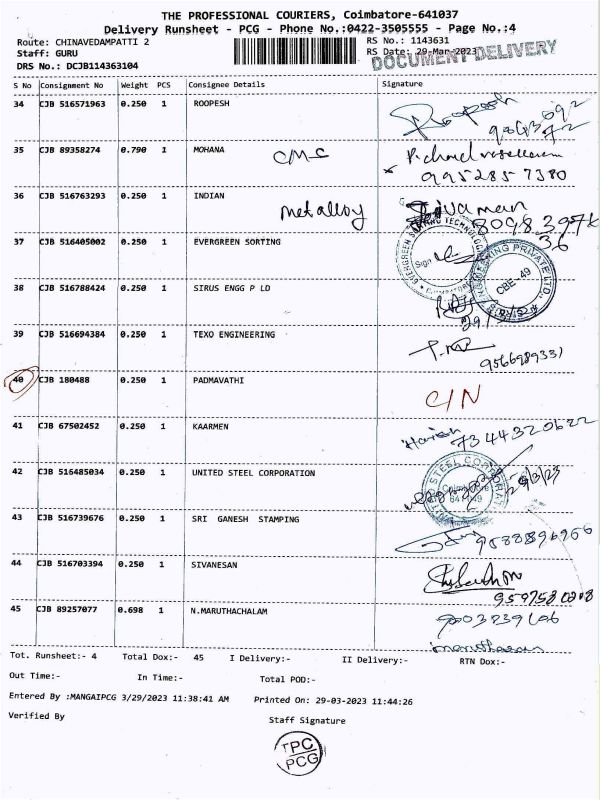 THE PROFESSIONAL COURIERS, Coimbatore-641037
Delivery Runsheet - PCG - Phone No.:0422-3505555 - Page No.:4
Route: CHINAVEDAMPATTI 2 RS No.: 1143631
Staff: GURU RS Date: 29-Mar-2023
DOCUMENT DELIVERY
DRS No.: DCJB114363104
S No Consignment No Weight PCS Consignee Details Signature
34 CJB 516571963 0.250 1 ROOPESH Roopesh
35 CJB 89358274 0.790 1 MOHANA CMC
9952857380
36 CJB 516763293 0.250 1 INDIAN metalloy
37 CJB 516405002 0.250 1 EVERGREEN SORTING 36
38 CJB 516788424 0.250 1 SIRUS ENGG P LD CBE-49
39 CJB 516694384 0.250 1 TEXO ENGINEERING
9566989331
40 CJB 180488 0.250 1 PADMAVATHI C/N
41 CJB 67502452 0.250 1 KAARMEN Harish 7344320622
42 CJB 516485034 0.250 1 UNITED STEEL CORPORATION
43 CJB 516739676 0.250 1 SRI GANESH STAMPING
44 CJB 516703394 0.250 1 SIVANESAN
45 CJB 89257077 0.698 1 N.MARUTHACHALAM
Tot. Runsheet:- 4 Total Dox:- 45 I Delivery:- II Delivery:- RTN Dox:-
Out Time:- In Time:- Total POD:-
Entered By :MANGAIPCG 3/29/2023 11:38:41 AM Printed On: 29-03-2023 11:44:26
Verified By Staff Signature
TPC
PCG